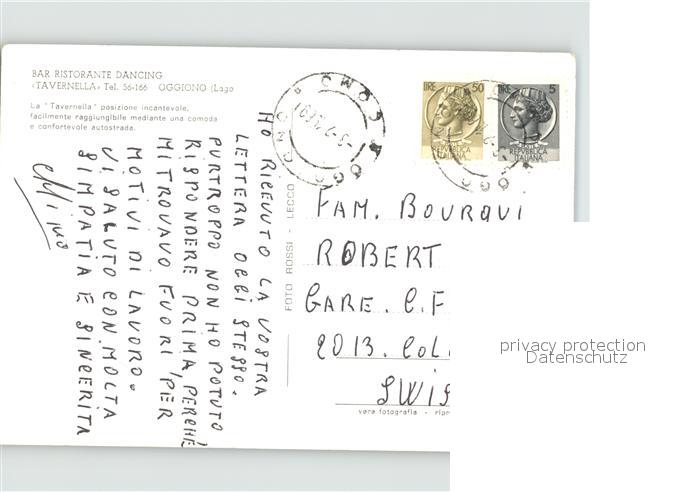 BAR RISTORANTE DANCING
«TAVERNELLA» Tel. 56-166 OGGIONO (Lago
La "Tavernella" posizione incantevole,
facilmente raggiungibile mediante una comoda
e confortevole autostrada.
HO RICEVUTO LA VOSTRA
LETTERA OGGI STESSO.
PURTROPPO NON HO POTUTO
RISPONDERE PRIMA, PERCHÈ
MI TROVAVO FUORI PER
MOTIVI DI LAVORO.
VI SALUTO CON MOLTA
SIMPATIA E SINCERITA
Mino
FOTO ROSSI - LECCO
LIRE 50
LIRE 5
REPUBBLICA
ITALIANA
COMO
FAM. BOURQUI
ROBERT
GARE. C.F
2013. COL
SWIS
vera fotografia - ripr
privacy protection
Datenschutz